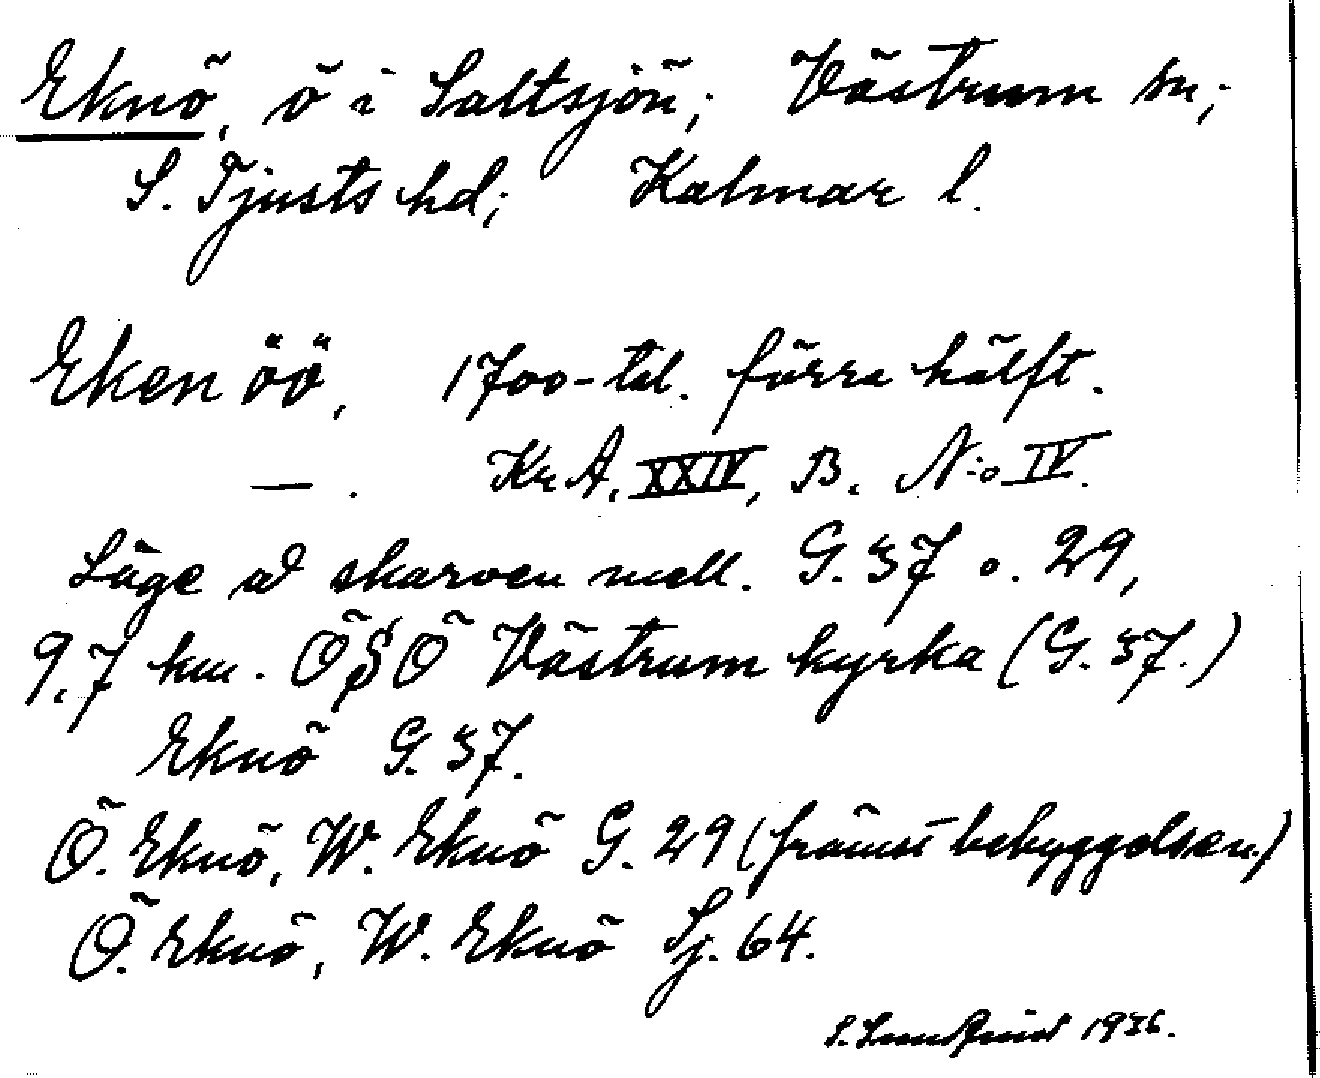 Eknö, ö i Saltsjön; Västrum sn;
S. Tjusts hd; Kalmar l.
Eken öö, 1700-tal. förra hälft.
— . Kr. A. XXIV, B. N:o IV.
Läge å skarven mell. G. 37 o. 29,
9,7 km. ÖSÖ Västrum kyrka (G. 37.)
Eknö G. 37.
Ö. Eknö, W. Eknö G. 29 (främst bebyggelsen.)
Ö. Eknö, W. Eknö Sj. 64.
1936.